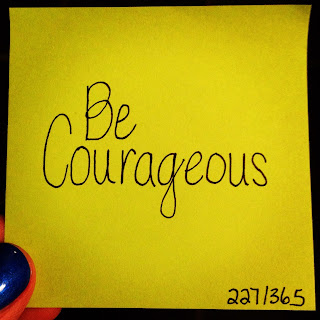 Be
Courageous
227/365